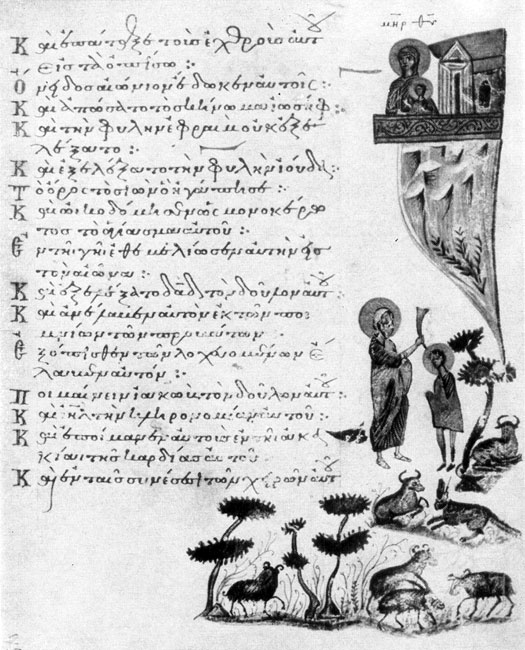 ΜΗΡ ΘΥ
Καὶ ἐπάταξε τοὺς ἐχθροὺς αὐτοῦ
εἰς τὰ ὀπίσω :
Ὄνειδος αἰώνιον ἔδωκεν αὐτοῖς :
Καὶ ἀπώσατο τὸ σκήνωμα ἰωσήφ :
Καὶ τὴν φυλὴν ἐφραὶμ οὐκ ἐξε
λέξατο :
Καὶ ἐξελέξατο τὴν φυλὴν ἰούδα :
Τὸ ὄρος τὸ σιὼν ὃ ἠγάπησε :
Καὶ ὠικοδόμησεν ὡς μονοκέρω
τος τὸ ἁγίασμα αὐτοῦ :
Ἐν τῆ γῆ ἐθεμελίωσεν αὐτὴν εἰς
τὸν αἰῶνα :
Καὶ ἐξελέξατο δαδ τὸν δοῦλον αὐτοῦ :
Καὶ ἀνέλαβεν αὐτὸν ἐκ τῶν ποι
μνίων τῶν προβάτων
Ἐξόπισθεν τῶν λοχευομένων ἔ
λαβεν αὐτόν :
Ποιμαίνειν ἰακὼβ τὸν δοῦλον αὐτοῦ
Καὶ ιηλ τὴν κληρονομίαν αὐτοῦ :
Καὶ ἐποίμανεν αὐτοὺς ἐν τῆ ἀκα
κία τῆς καρδίας αὐτοῦ
Καὶ ἐν ταῖς συνέσεσι τῶν χειρῶν αὐτοῦ